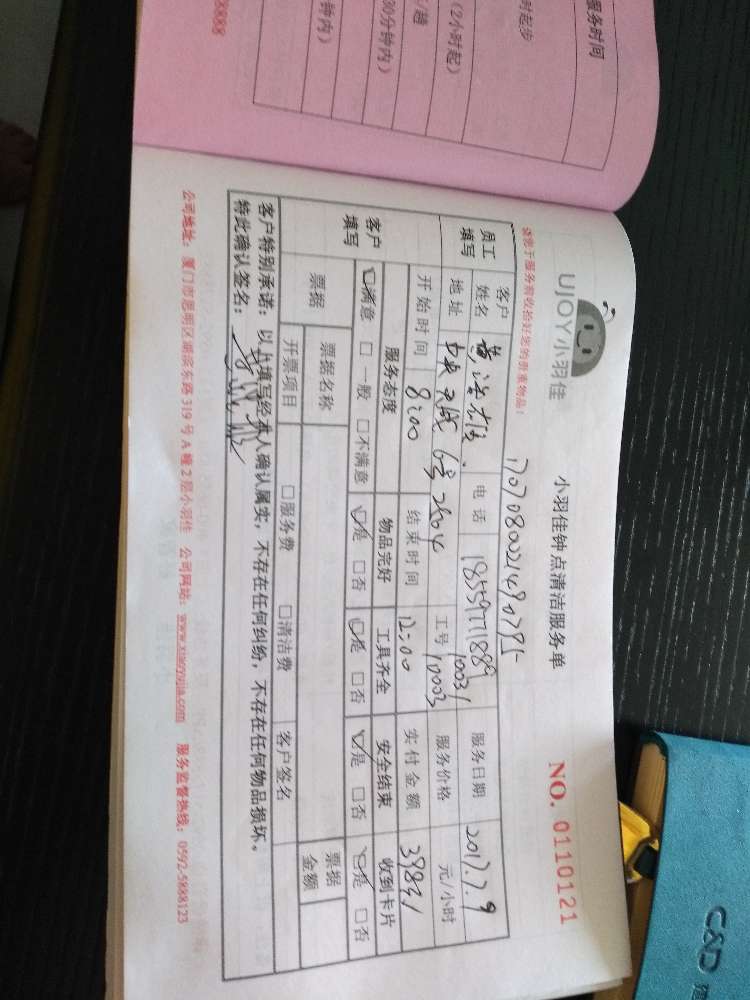 服务时间
时起步
（2小时起）
30分钟内）
钟内）
8888
UJOY小羽佳
小羽佳钟点清洁服务单
NO. 0110121
请您于服务前收拾好您的贵重物品！
员工填写
客户姓名
电话
18559271889
服务日期
2017.7.9
地址
6号2504
工号
10031
10003
服务价格
元/小时
开始时间
8:00
结束时间
12:00
实付金额
客户填写
服务态度
物品完好
工具齐全
安全结束
收到卡片
☑满意 □一般 □不满意
☑是 □否
☑是 □否
☑是 □否
☑是 □否
票据
票据名称
票据金额
开票项目
□服务费
□清洁费
客户签名
客户特别承诺：以上填写经本人确认属实，不存在任何纠纷，不存在任何物品损坏。
特此确认签名：
公司地址：厦门市思明区湖滨东路319号A幢2层小羽佳 公司网站：www.xiaoyujia.com 服务监督热线：0592-5888123
C&D